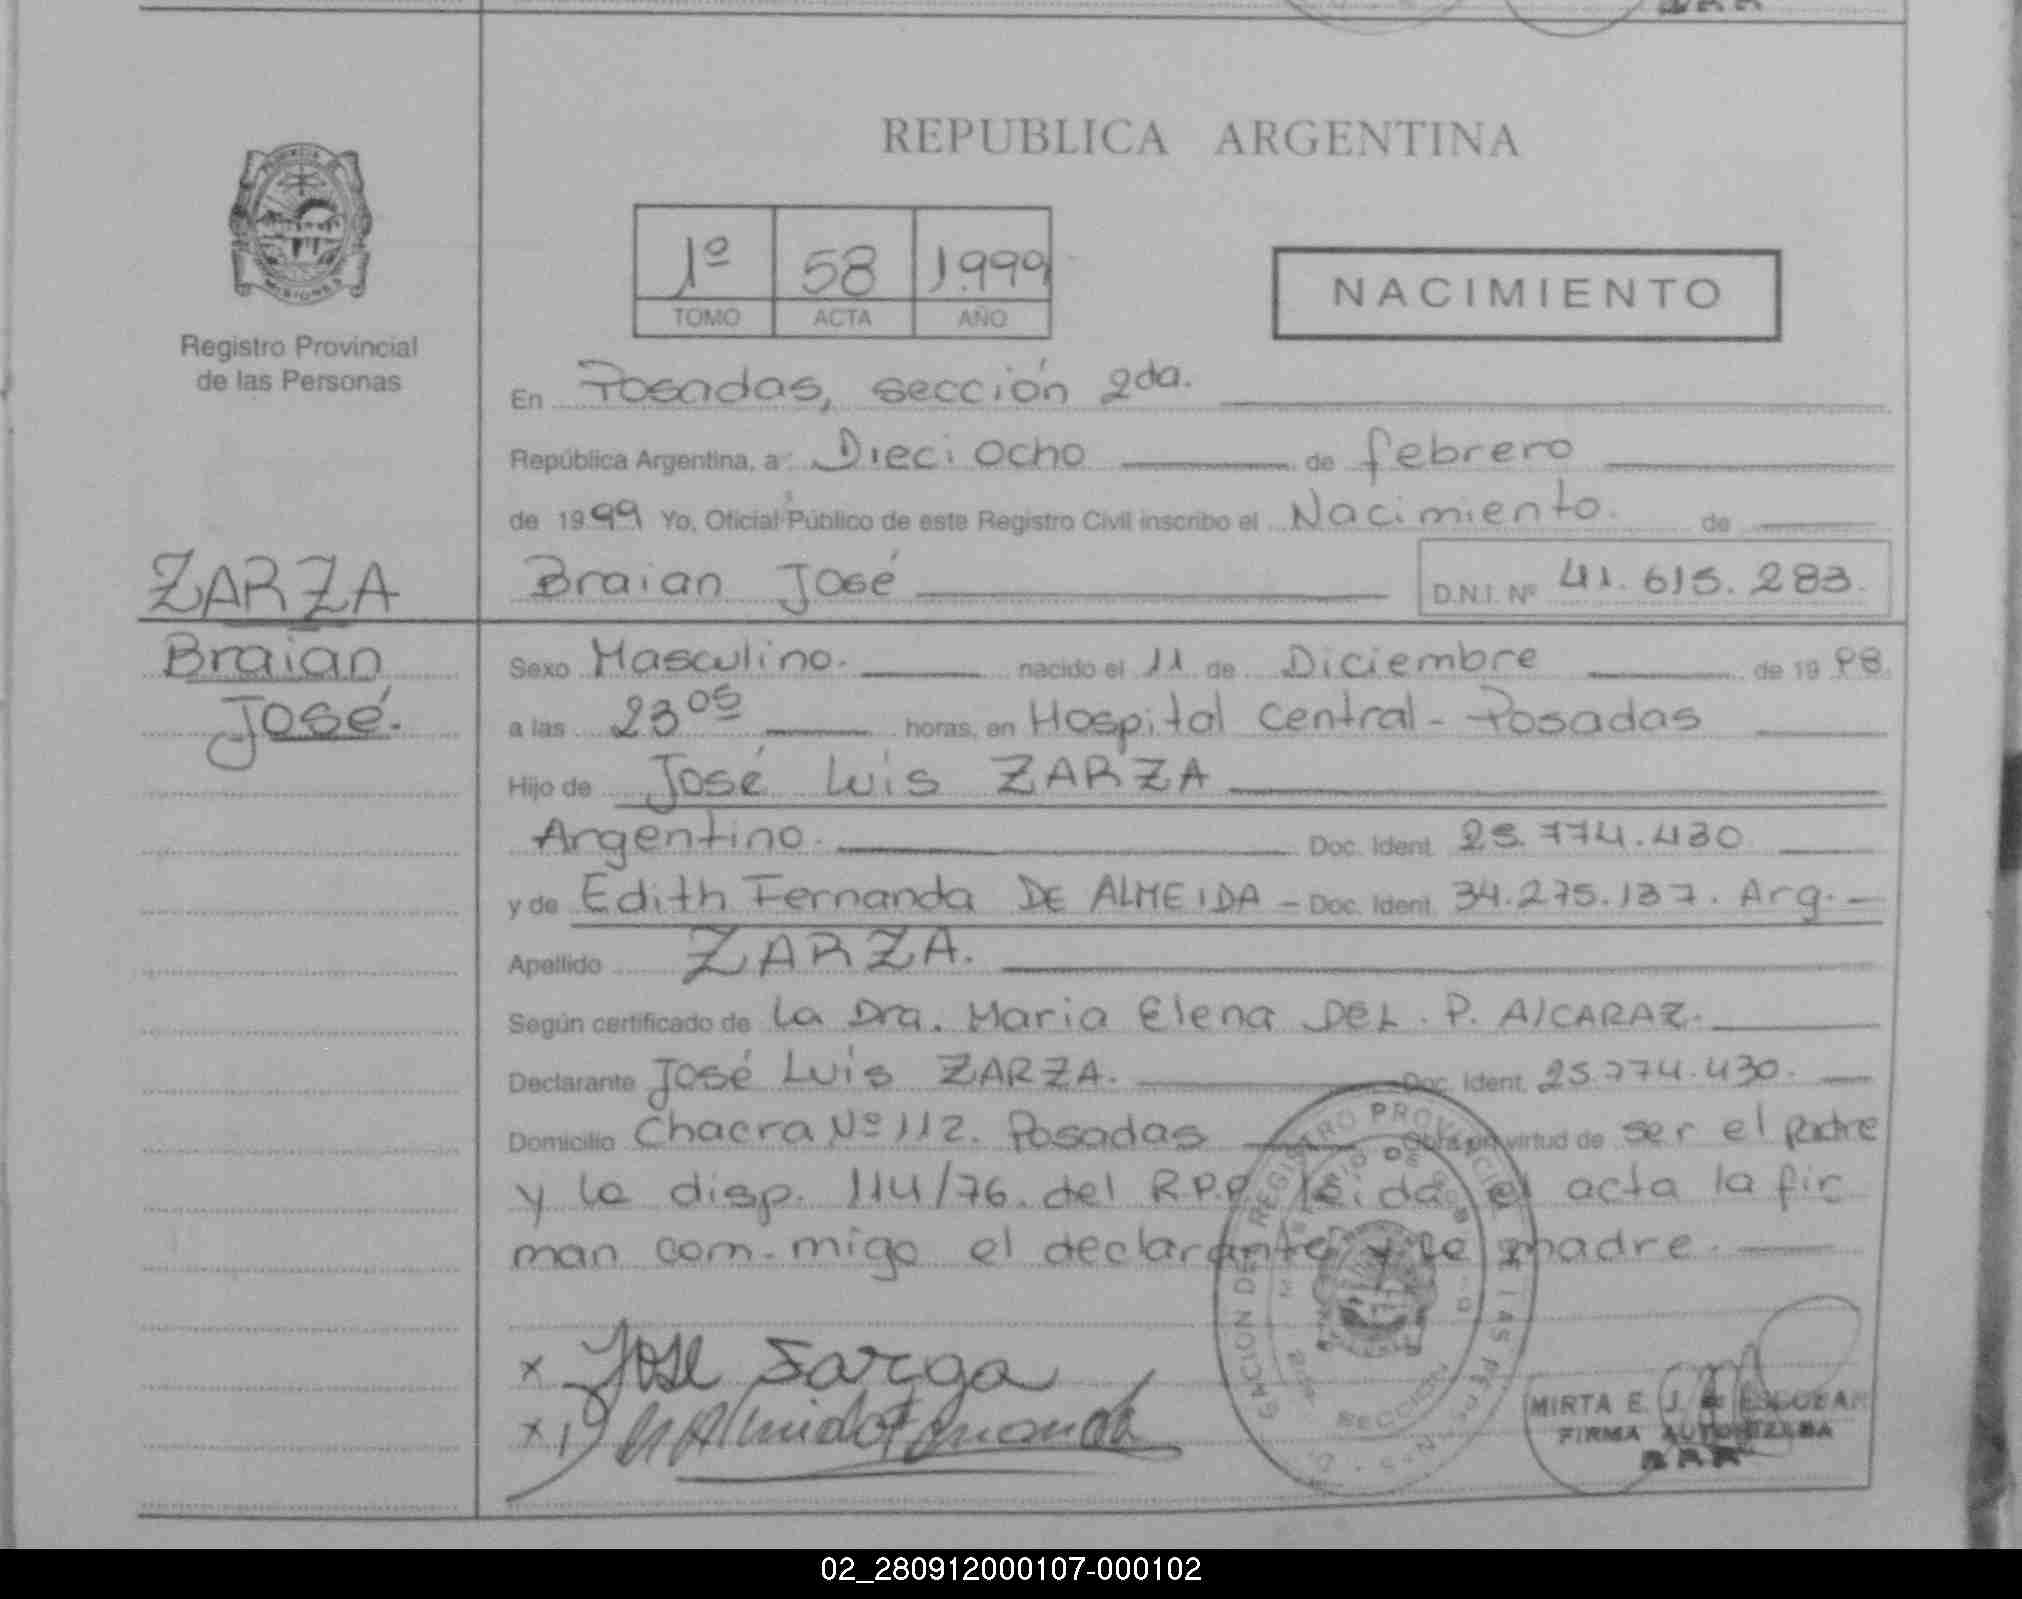 REPUBLICA ARGENTINA
PROVINCIA DE
MISIONES
Registro Provincial
de las Personas
1º 58 1.999
TOMO ACTA AÑO
NACIMIENTO
En Posadas, sección 2da.
República Argentina, a Dieci ocho de febrero
de 1999 Yo, Oficial Público de este Registro Civil inscribo el Nacimiento. de
ZARZA
Braian
José.
Braian José D.N.I. Nº 41.615.283.
Sexo Masculino. nacido el 11 de Diciembre de 1998.
a las 23 05 horas, en Hospital Central - Posadas
Hijo de José Luis ZARZA
Argentino. Doc. Ident. 25.774.430
y de Edith Fernanda DE ALMEIDA - Doc. Ident. 34.275.137. Arg. -
Apellido ZARZA.
Según certificado de La Dra. Maria Elena DEL. P. AlCARAZ.
Declarante José Luis ZARZA. Doc. Ident. 25.774.430.
Domicilio Chacra Nº 112. Posadas Obra en virtud de ser el padre
y la disp. 114/76. del R.P.P. leida el acta la fir
man com-migo el declarante y la madre.
x Jose Sarga
x
REGISTRO PROVINCIAL
SECCION
MIRTA E. J. de ESCOBAR
FIRMA AUTORIZADA
02_280912000107-000102